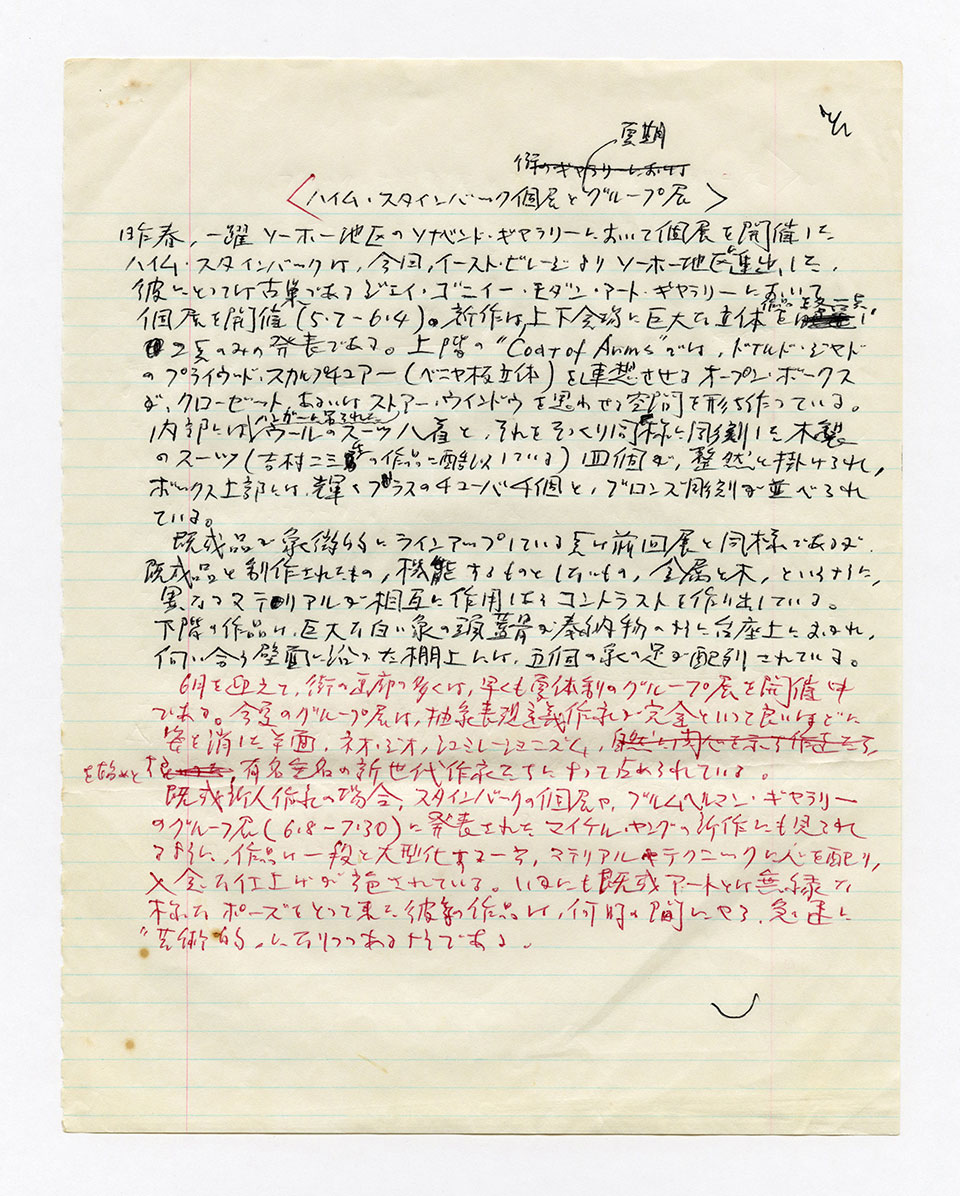 夏期
街のギャラリーにおけ
〈ハイム・スタインバック個展とグループ展〉
昨春、一躍ソーホー地区のソナベンド・ギャラリーにおいて個展を開催した
ハイム・スタインバックは、今回、イースト・ビレージよりソーホー地区に進出した、
彼にとっては古巣であるジェイ・ゴニィー・モダン・アート・ギャラリーにおいて
個展を開催(5・7-6・4)。新作は、上下会場に巨大な立体
2点のみの発表である。上階の"Coat of Arms"では、ドナルド・ジャド
のプライウッド・スカルプチュアー(ベニヤ板立体)を連想させるオープン・ボックス
が、クローゼット、あるいはストアー・ウインドウを思わせる空間を形ち作っている。
ハンガーに吊るされた
内部にはウールのスーツ八着と、それをそっくり同様に彫刻した木製
のスーツ(吉村二三生の作品に酷似している)四個が、整然と掛けられ、
ボックス上部には、輝くブラスのチューバ4個と、ブロンズ彫刻が並べられ
ている。
既成品が象徴的にラインアップしている点は前回展と同様であるが、
既成品と制作されたもの、機能するものとしないもの、金属と木、というように、
異なるマテリアルが相互に作用しあうコントラストを作り出している。
下階の作品は、巨大な白い象の頭蓋骨が奉納物のように台座上におかれ、
向い合う壁面に沿った棚上には、五個の象の足が配列されている。
6月を迎えて、街の画廊の多くは、早くも夏体制のグループ展を開催中
である。今夏のグループ展は、抽象表現主義作家が完全といって良いほどに
姿を消した半面、ネオ・ジオ、シュミレーショニズム、
を始めと、有名無名の新世代作家たちによって占められている。
既成新人作家の場合、スタインバックの個展や、ブルムヘルマン・ギャラリー
のグループ展(6・8-7・30)に発表されたマイケル・ヤングの新作にも見られ
るように、作品は一段と大型化する一方、マテリアルやテクニックに心を配り、
入念な仕上げが施されている。いかにも既成アートとは無縁な
様なポーズをとって来た彼等の作品は、何時の間にやら、急速に
"芸術的"になりつつあるようである。